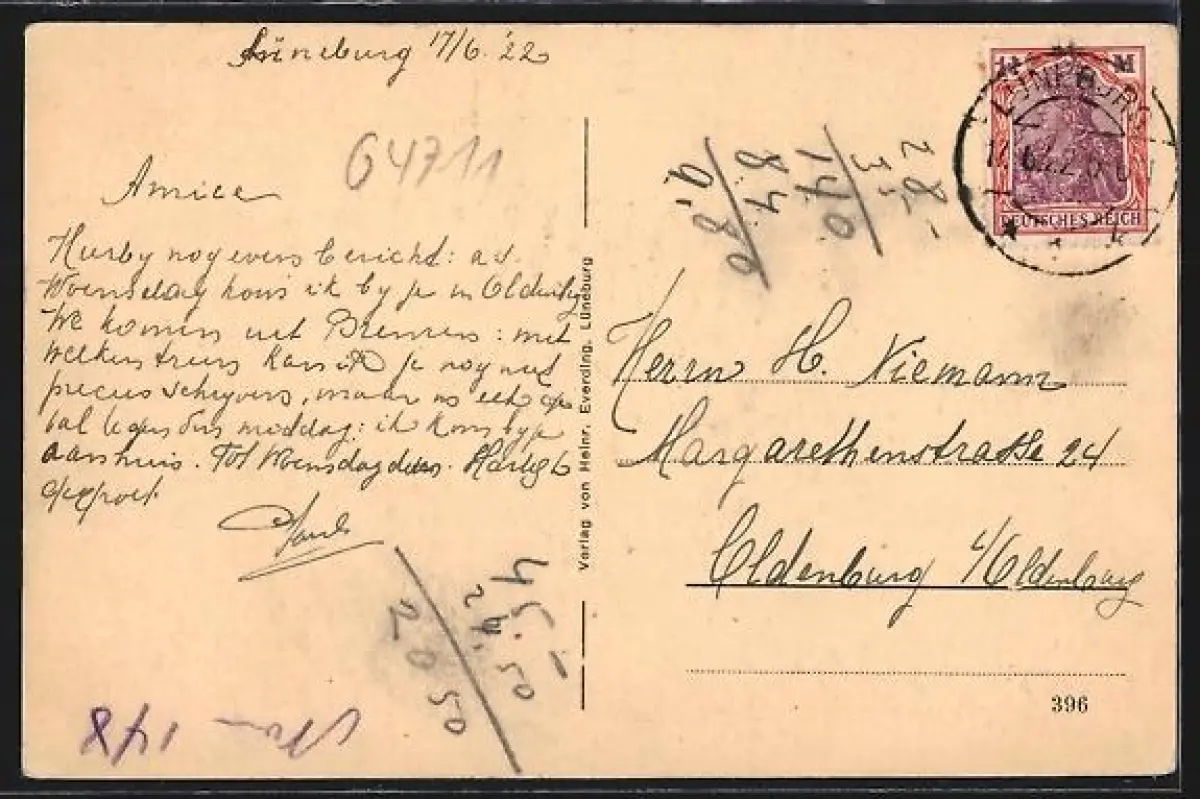 Lüneburg 17/6 '22
64711
Amice
Hierby nog even bericht: a.s.
Woensdag kom ik by je in Oldenbg
We komen uit Bremen: met
welken trein kan ik je nog niet
precies schryven, maar
middag: ik kom by je
aan huis. Tot Woensdag dus. Hartel.
gegroet
Verlag von Heinr. Everding, Lüneburg
1¼ M
DEUTSCHES REICH
LÜNEBURG
28-
140
84
Herrn H. Niemann
Margarethenstrasse 24
Oldenburg i/Oldenburg
396
45.-
2050